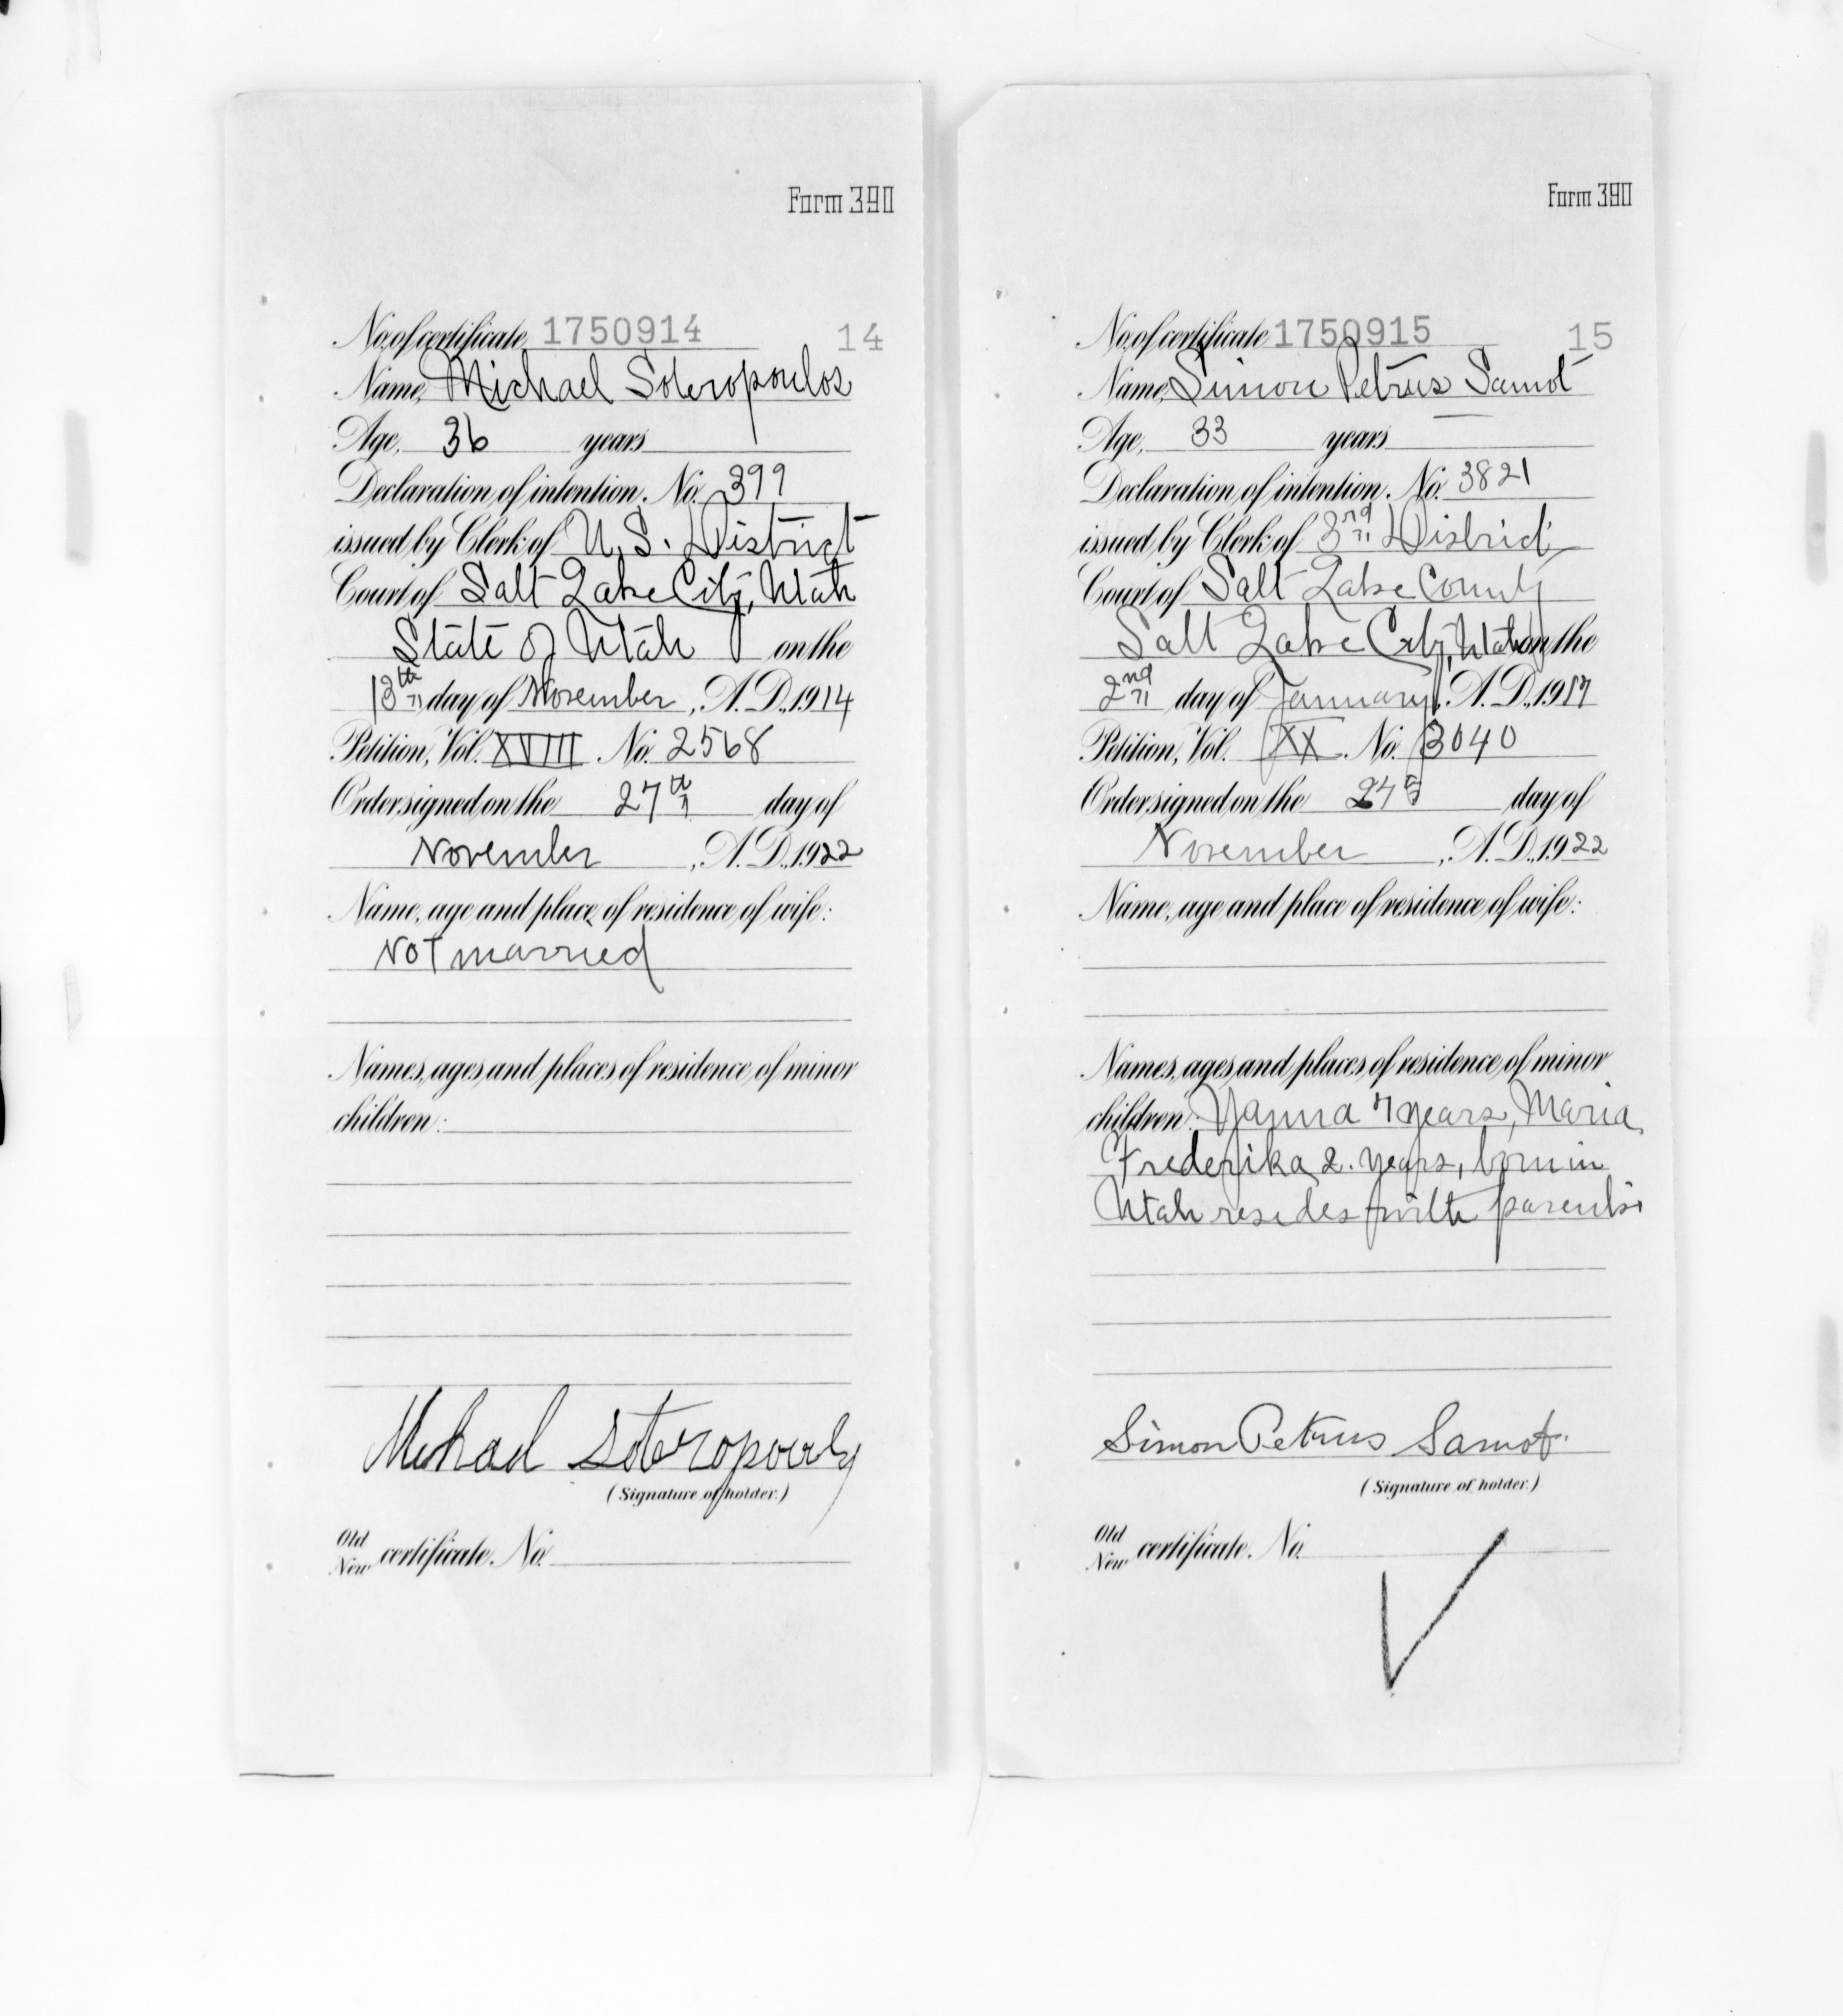 Form 390
No. of certificate 1750914 14
Name, Michael Soteropoulos
Age, 36 years
Declaration of intention, No. 399
issued by Clerk of U.S. District
Court of Salt Lake City, Utah
State of Utah on the
13th day of November, A.D., 1914
Petition, Vol. XVIII No. 2568
Order signed on the 27th day of
November, A.D., 1922
Name, age and place of residence of wife:
Not married
Names, ages and places of residence of minor
children:
Michael Soteropouls
(Signature of holder.)
Old
New certificate. No.
Form 390
No. of certificate 1750915 15
Name, Simon Petrus Samot
Age, 33 years
Declaration of intention, No. 3821
issued by Clerk of 3rd District
Court of Salt Lake County
Salt Lake City, Utah on the
2nd day of January, A.D., 1917
Petition, Vol. XX No. 3040
Order signed on the 27th day of
November, A.D., 1922
Name, age and place of residence of wife:
Names, ages and places of residence of minor
children: 7 years, Maria
Frederika 2. years, born in
Utah resides with parents.
Simon Petrus Samot.
(Signature of holder.)
Old
New certificate. No.